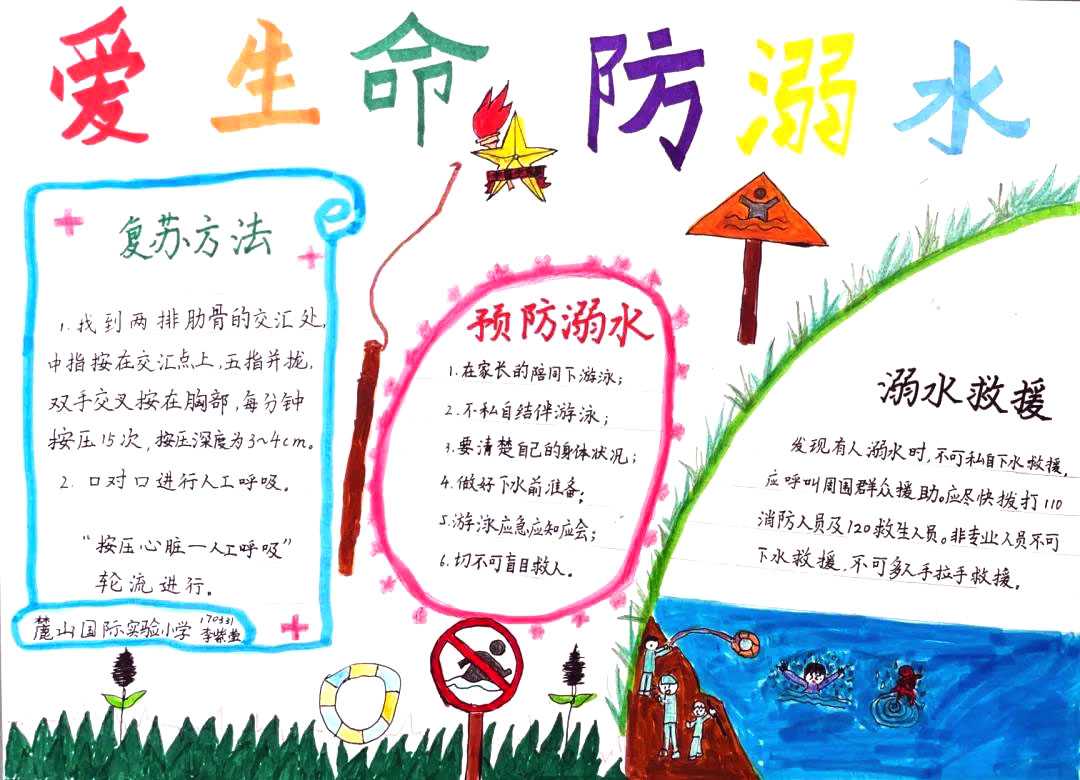 爱生命防溺水
复苏方法
1.找到两排肋骨的交汇处,
中指按在交汇点上,五指并拢,
双手交叉按在胸部,每分钟
按压15次,按压深度为3~4cm。
2. 口对口进行人工呼吸。
“按压心脏一人工呼吸”
轮流进行。
170331
麓山国际实验小学
预防溺水
1.在家长的陪同下游泳;
2.不私自结伴游泳;
3.要清楚自己的身体状况;
4.做好下水前准备;
5.游泳应急应知应会;
6.切不可盲目救人。
溺水救援
发现有人溺水时,不可私自下水救援,
应呼叫周围群众援助。应尽快拨打110
消防人员及120救生人员。非专业人员不可
下水救援,不可多人手拉手救援。